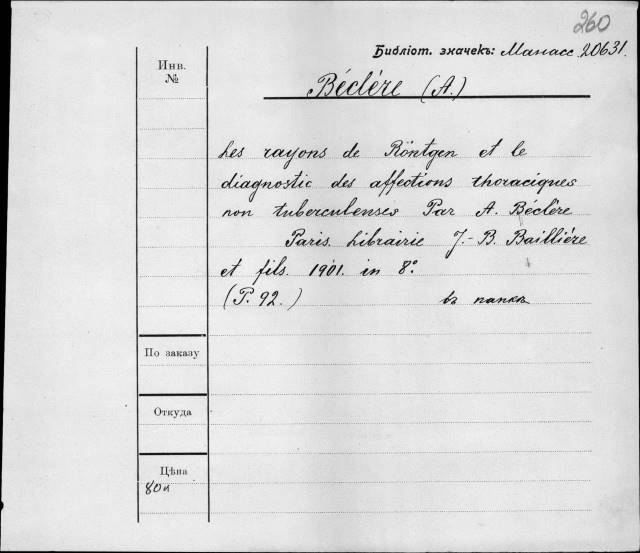 260
Библіот. значекъ: Манасс. 20631.
Инв.
№
Béclére (A.)
Les rayons de Röntgen et le
diagnostic des affections thoraciques
non tuberculenses Par A. Béclère
Paris. Librairie J.-B. Bailliére
et fils. 1901. in 8°.
(P. 92.) въ папкѣ
По заказу
Откуда
Цѣна
80к